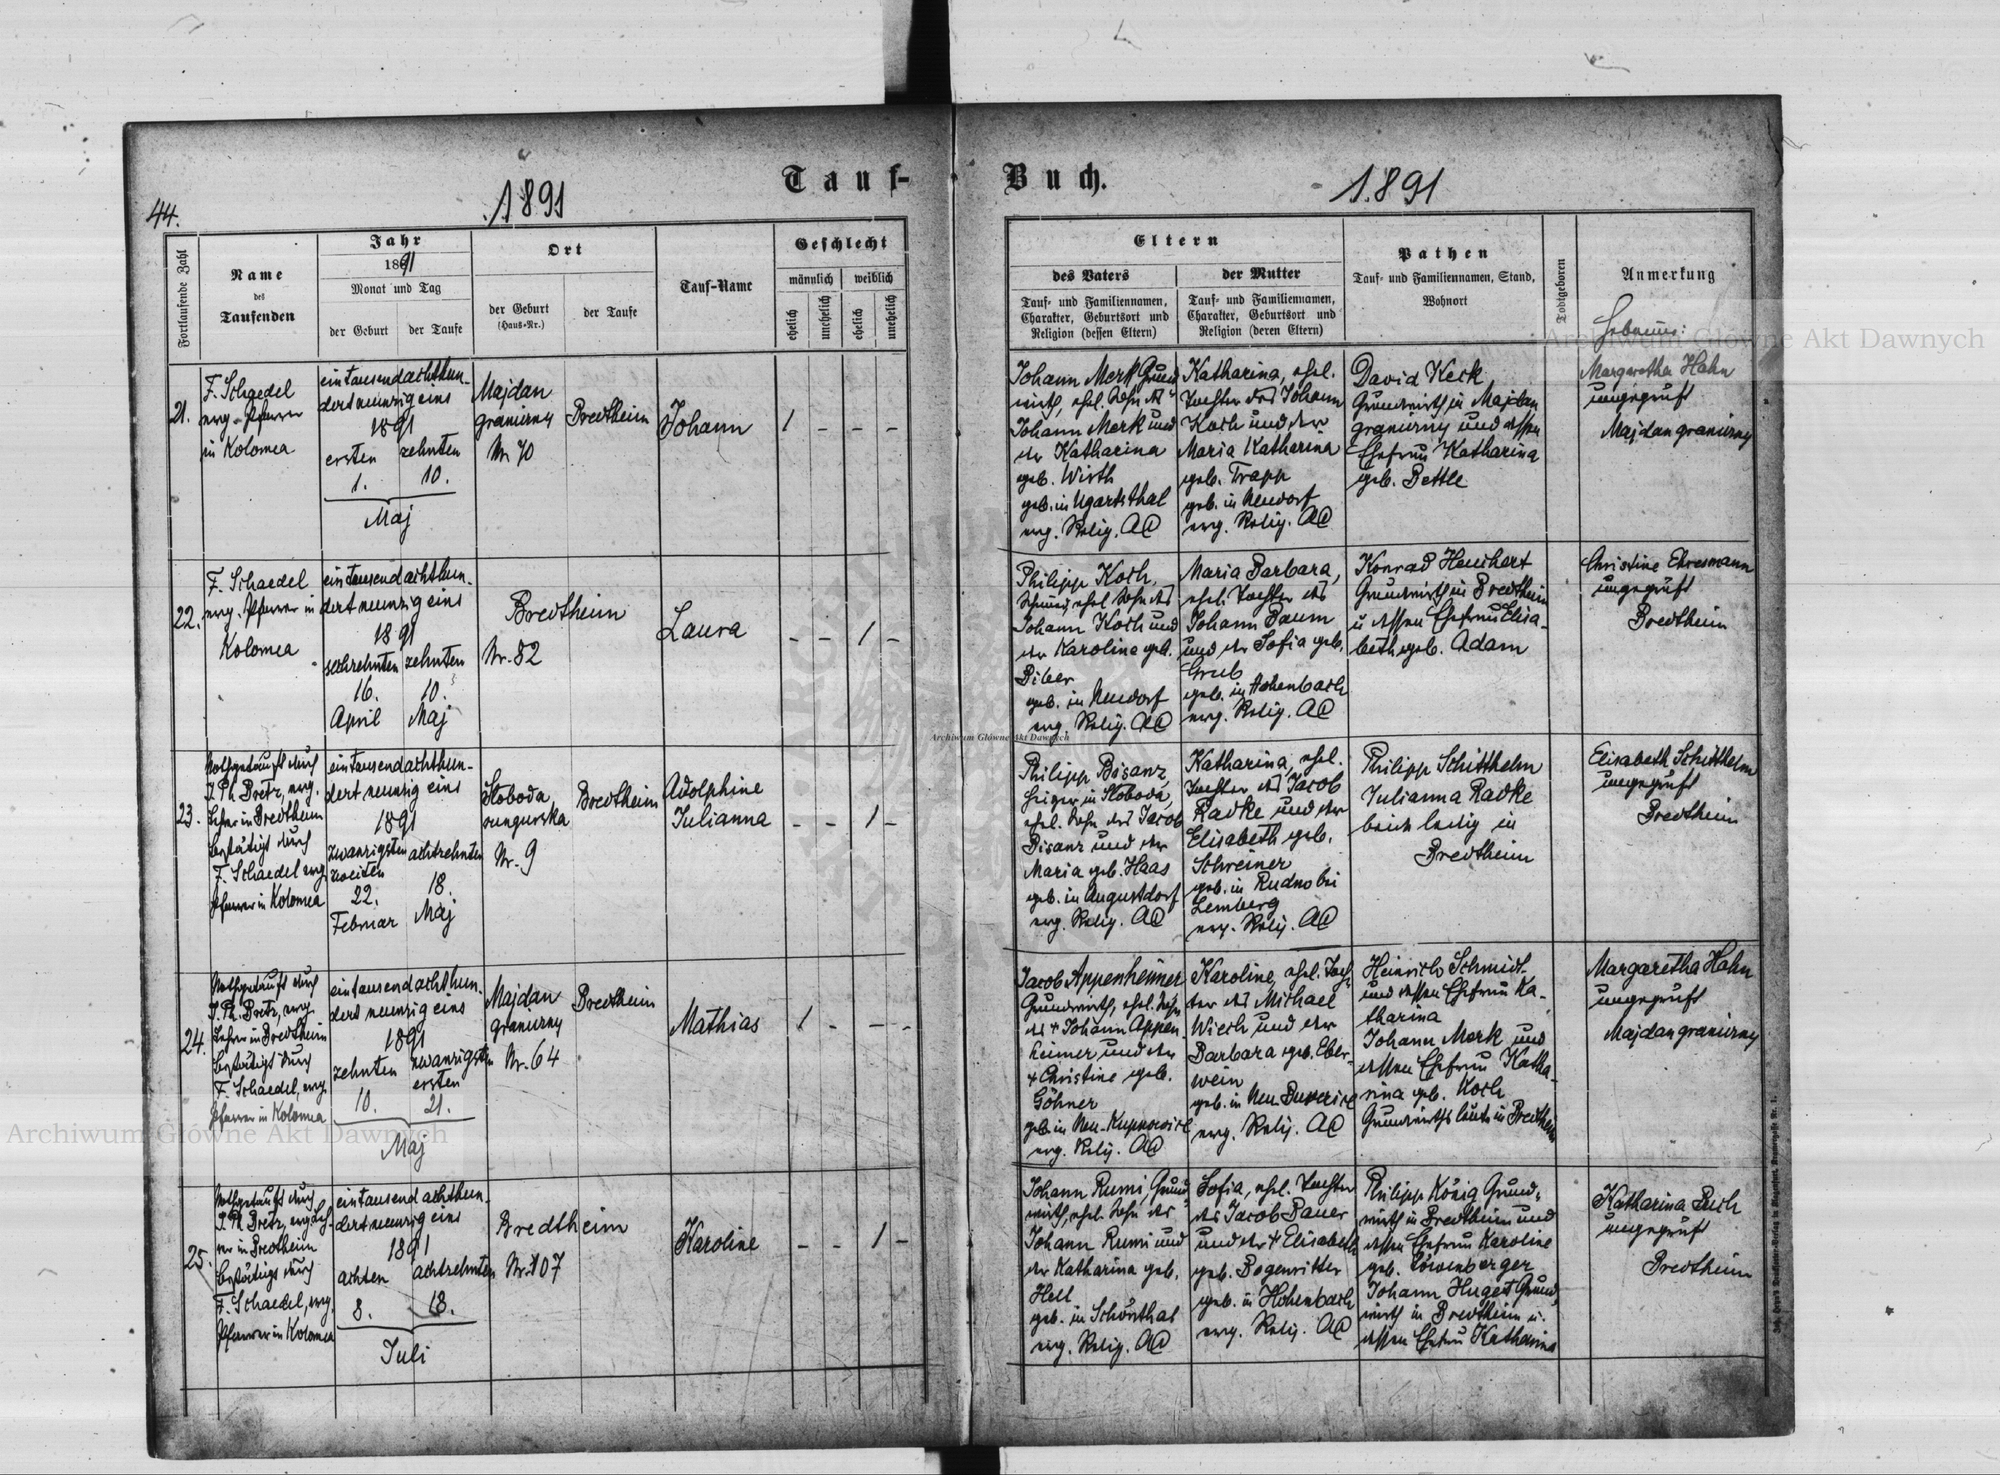 Tauf-
Buch.
1891
1.891
44.
Fortlaufende Zahl
Name
des
Taufenden
Jahr
1891
Monat und Tag
der Geburt
der Taufe
Ort
der Geburt
(Haus-Nr.)
der Taufe
Tauf-Name
Geschlecht
männlich
weiblich
ehelich
unehelich
ehelich
unehelich
Eltern
des Vaters
Tauf- und Familiennamen,
Charakter, Geburtsort und
Religion (dessen Eltern)
der Mutter
Tauf- und Familiennamen,
Charakter, Geburtsort und
Religion (deren Eltern)
Pathen
Tauf- und Familiennamen, Stand,
Wohnort
Todtgeboren
Anmerkung
Hebamme:
21.
F. Schaedel
evg. Pfarrer
in Kolomea
eintausendachthun-
dertneunzigeins
1891
ersten zehnten
1. 10.
Maj
Majdan
graniczny
Nr 70
Bredtheim
Johann
1 - - -
Johann Merk Grund
wirth, ehel. Sohn des
Johann Merk und
der Katharina
geb. Wirth
geb. in Ugartsthal
evg. Relig. AC
Katharina, ehel.
Tochter des Johann
Koch und der
Maria Katharina
geb. Trapp
geb. in Neudorf
evg. Relig. AC
David Keck
Grundwirth in Majdan
graniczny und dessen
Ehefrau Katharina
geb. Bettle
Margaretha Hahn
ungeprüft
Majdan graniczny
22.
F. Schaedel
evg. Pfarrer in
Kolomea
eintausendachthun-
dertneunzigeins
1891
sechzehnten zehnten
16. 10.
April Maj
Bredtheim
Nr. 82
Laura
- - 1 -
Philipp Koch,
Schmied, ehel. Sohn des
Johann Koch und
der Karolina geb.
Biber
geb. in Neudorf
evg. Relig. AC
Maria Barbara,
ehel. Tochter des
Johann Baum
und der Sofia geb.
Grub
geb. in Hohenbach
evg. Relig. AC
Konrad Heuchert
Grundwirth in Bredtheim
u dessen Ehefrau Elisa-
beth geb. Adam
Christine Ehresmann
ungeprüft
Bredtheim
23.
Nothgetauft durch
J. Ph. Bretz, evg.
Lehrer in Bredtheim
bestätigt durch
F. Schaedel evg
Pfarrer in Kolomea
eintausendachthun-
dertneunzigeins
1891
zwanzigsten achtzehnten
zweiten
22. 18.
Februar Maj
Sloboda
rungurska
Nr. 9
Bredtheim
Adolphine
Julianna
- - 1 -
Philipp Bisanz,
Heizer in Sloboda,
ehel. Sohn des Jacob
Bisanz und der
Maria geb. Haas
geb. in Augustdorf
evg. Relig. AC
Katharina, ehel.
Tochter des Jacob
Radke und der
Elisabeth geb.
Schreiner
geb. in Rudno bei
Lemberg
evg. Relig. AC
Philipp Schitthelm
Julianna Radke
beide ledig in
Bredtheim
Elisabeth Schitthelm
ungeprüft
Bredtheim
24.
Nothgetauft durch
J. Ph. Bretz, evg.
Lehrer in Bredtheim
bestätigt durch
F. Schaedel, evg.
Pfarrer in Kolomea
eintausendachthun-
dertneunzigeins
1891
zehnten zwanzigsten
ersten
10. 21.
Maj
Majdan
graniczny
Nr. 64
Bredtheim
Mathias
1 - - -
Jacob Appenheimer
Grundwirth, ehel. Sohn
des + Johann Appen-
heimer und der
+ Christine geb.
Göhner
geb. in Neu-Kupnowice
evg. Relig. AC
Karoline, ehel. Toch-
ter des Michael
Wiech und der
Barbara geb. Eber-
wein
geb. in Neu
evg. Relig. AC
Heinrich Schmidt
und dessen Ehefrau Ka-
tharina
Johann Merk und
dessen Ehefrau Katha-
rina geb. Koch
Grundwirthsleute in Bredtheim
Margaretha Hahn
ungeprüft
Majdan graniczny
25.
Nothgetauft durch
J. Ph. Bretz, evg Leh-
rer in Bredtheim
bestätigt durch
F. Schaedel, evg.
Pfarrer in Kolomea
eintausend achthun-
dertneunzigeins
1891
achten achtzehnten
8. 18.
Juli
Bredtheim
Nr. 107
Karoline
- - 1 -
Johann Rumi, Grund-
wirth, ehel. Sohn des
Johann Rumi und
der Katharina geb.
Hell
geb. in Schönthal
evg. Relig. AC
Sofia, ehel. Tochter
des Jacob Bauer
und der + Elisabeth
geb. Bogenritter
geb. in Hohenbach
evg. Relig. AC
Philipp König Grund-
wirth in Bredtheim und
dessen Ehefrau Karoline
geb. Löwenberger
Johann Hugel Grund
wirth in Bredtheim u.
dessen Ehefrau Katharina
Katharina Buch
ungeprüft
Bredtheim
Archiwum Główne Akt Dawnych
Archiwum Główne Akt Dawnych
Archiwum Główne Akt Dawnych